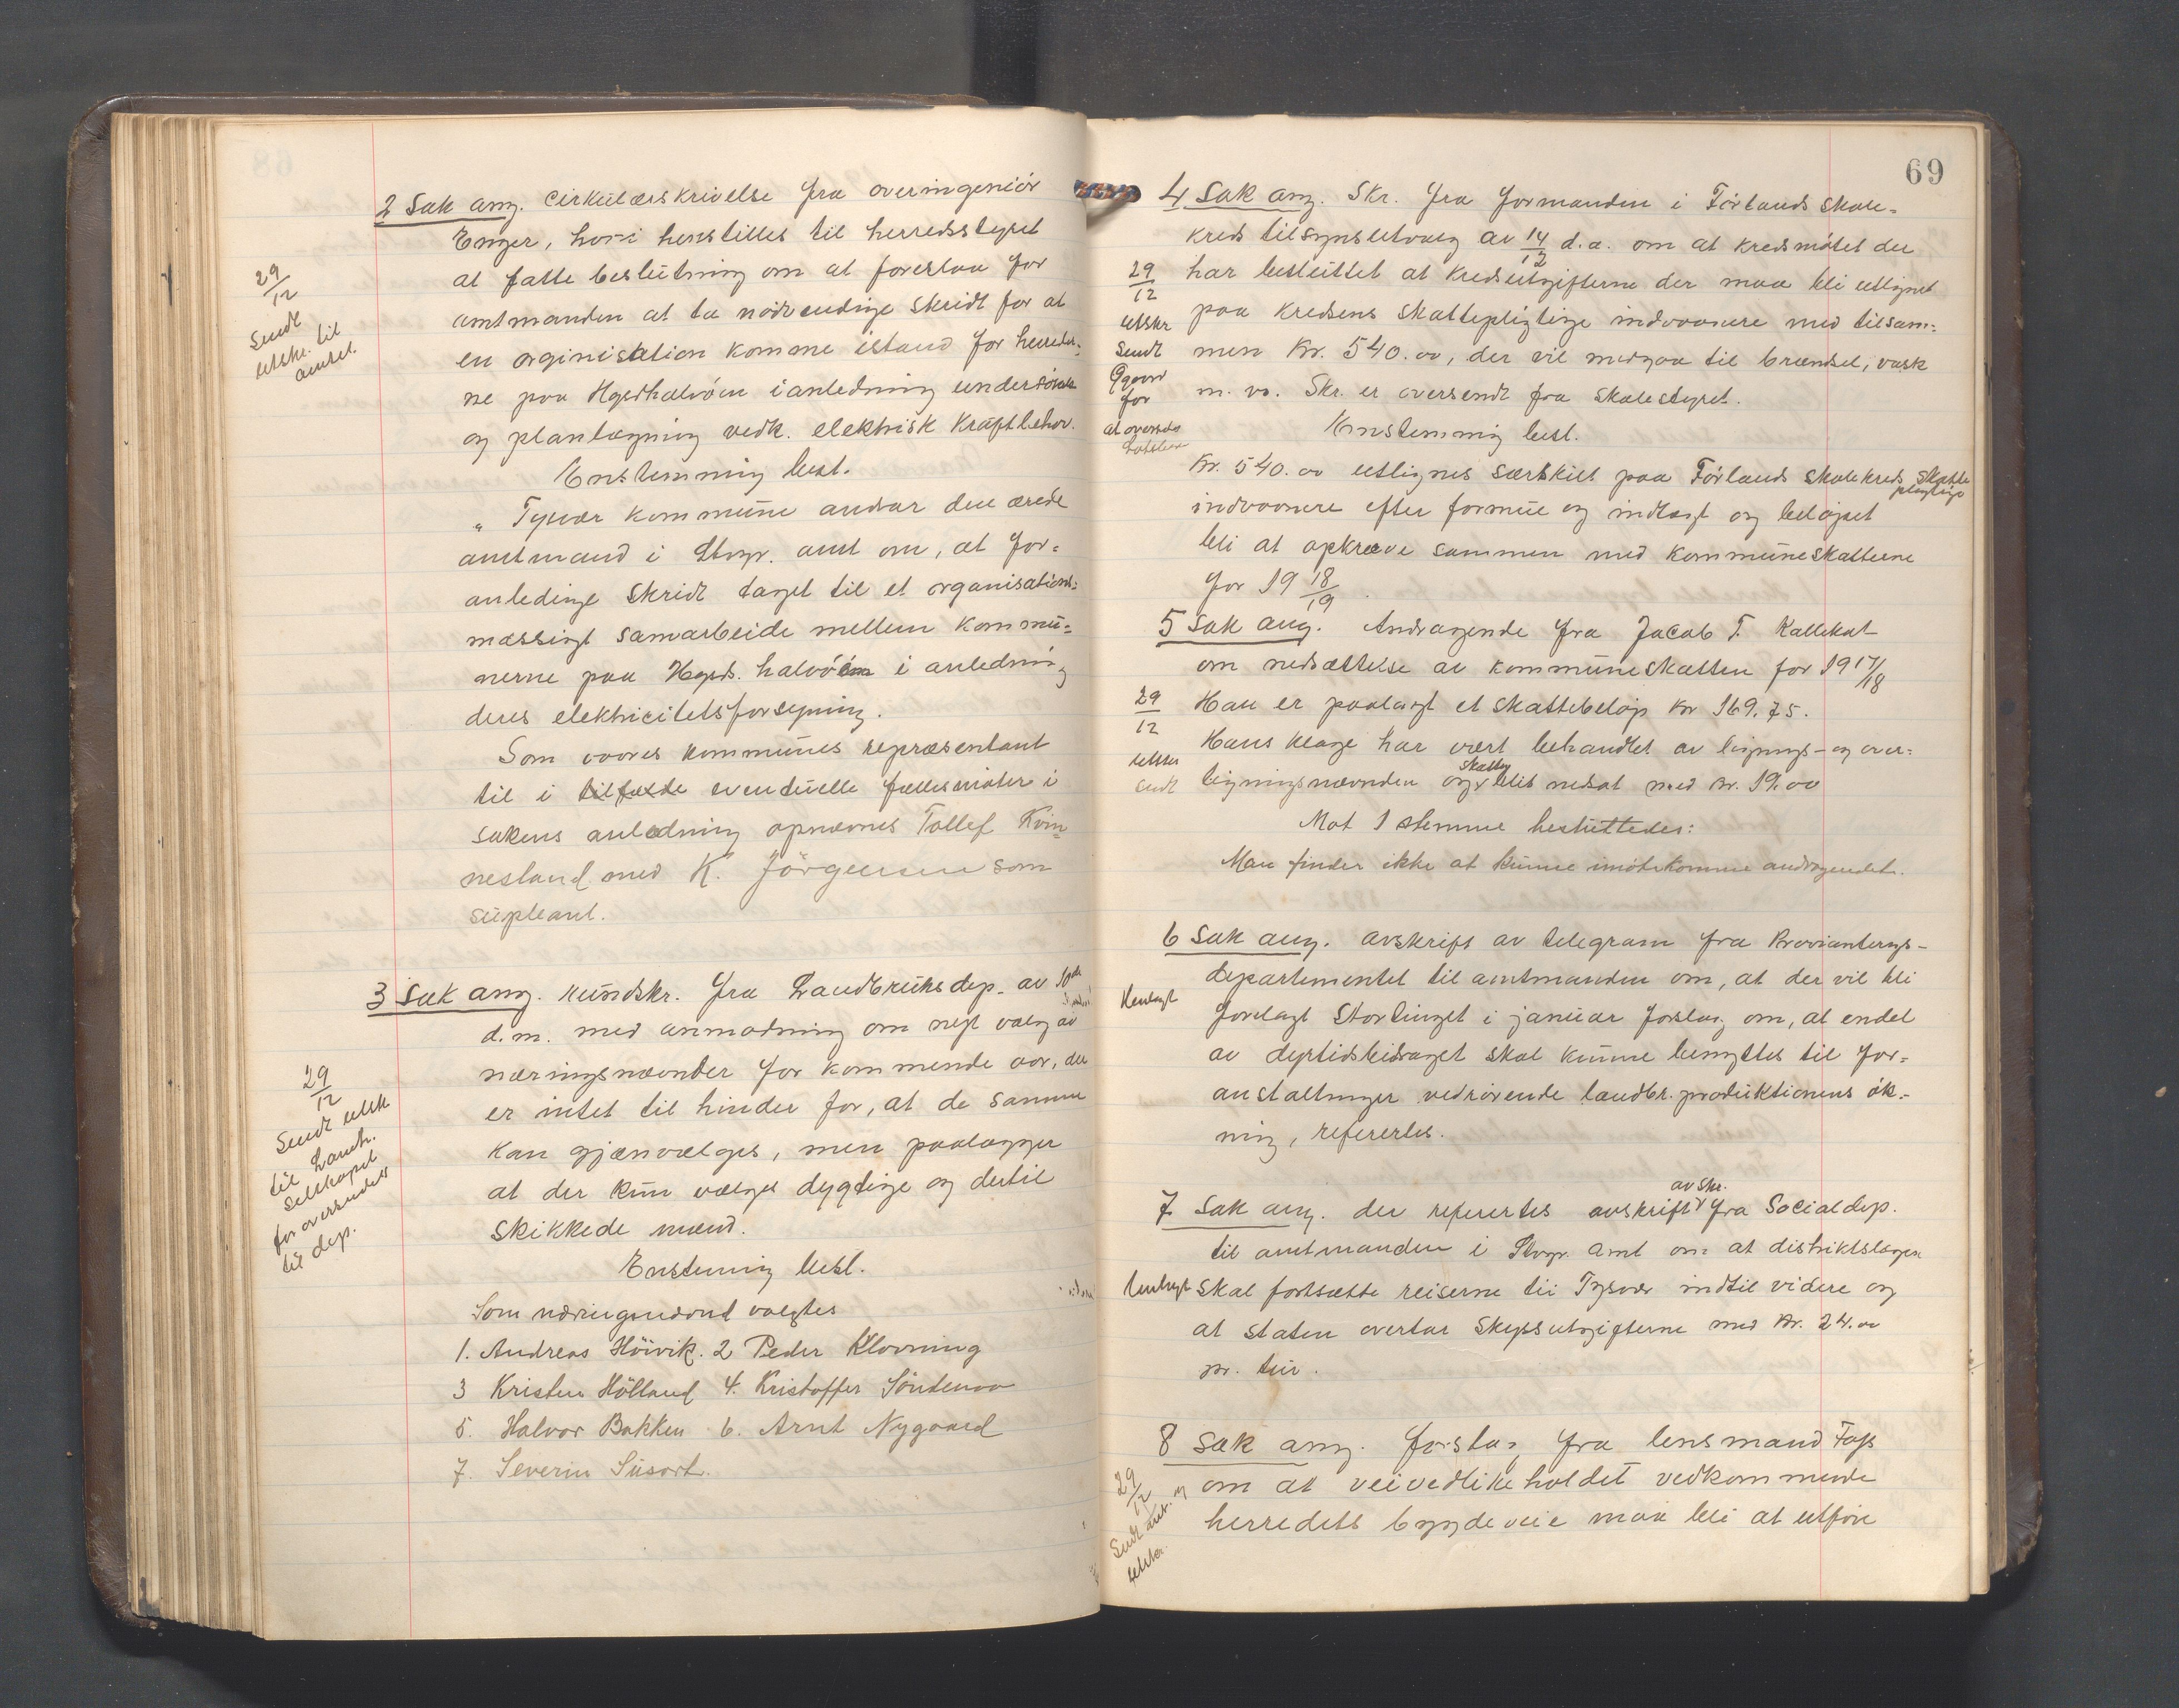 2 Sak ang. cirkulærskrivelse fra overingeniör
Enger, hvori henstilles til herredsstyret
at fatte beslutning om at foreslaa for
29/12
Sendt
utskr. til
amtet.
amtmanden at ta nödvendige skridt for at
en orginisation komme istand for herreder-
ne paa Hgsdhalvöen i anledning undersökelse
og planlægning vedk. elektrisk kraftbehov.
Enstemmig besl.
" Tysvær kommune andrar den ærede
amtmand i Stvgr. amt om, at for-
anledige skridt taget til et organisations-
mæssigt samarbeide mellem kommu-
nerne paa Hgsds. halvöen i anledning
deres elektricitetsforsyning.
Som vaares kommunes repræsentant
til i tilfælde eventuelle fællesmöter i
sakens anledning opnævnes Tollef Kvin-
nesland med K. Jörgensen som
supleant.
3 Sak ang. rundskr. fra Landbruksdep. av 10de
d.m. med anmodning om nyt valg av
næringsnævnder for kommende aar, der
er intet til hinder for, at de samme
29/12
Sendt utsk
til Landh.
Selskapet
for oversendels
til dep.
kan gjænvælges, men paalægger
at der kun vælges dygtige og dertil
skikkede mænd.
Enstemmig besl.
Som næringsnævnd valgtes
1. Andreas Höivik. 2 Peder Klovning
3 Kristen Hölland 4. Kristoffer Söndenaa
5. Halvor Bakken 6. Arnt Nygaard
7. Severin Susort.
69
4 Sak ang. Skr. fra formanden i Förlands skole-
kreds tilsynsutvalg av 14/12 d.a. om at kredsmötet der
har besluttet at kredsutgifterne der maa bli utlignet
29/12
utskr
sendt
for
at oversendes
paa kredsens skattepligtige indvaanere med tilsam-
men kr. 540.00, der vil medgaa til brændsel, vask
m. v. Skr. er oversendt fra skolestyret.
Enstemmig besl.
Kr. 540.00 utlignes særskilt paa Förlands skolekreds skatte
pligtige
indvaanere efter formue og indtægt og belöpet
bli at opkræve sammen med kommuneskatterne
for 19 18/19.
5 Sak ang. Andragende fra Jacob T. Kallekat
om nedsættelse av kommuneskatten for 1917/18
29/12
utskr
sendt
Han er paalagt et skattebelöp kr 169.75.
Hans klage har vært behandlet av lignings- og over-
skatten
ligningsnævnden og blit nedsat med kr. 19.00
Mot 1 stemme besluttedes:
Man finder ikke at kunne imötekomme andragendet.
6 Sak ang. avskrift av telegram fra Provianterings-
departementet til amtmanden om, at der vil bli
Henlagt
forelagt Stortinget i januar forslag om, at endel
av dyrtidsbidraget skal kunne benyttes til for-
anstaltninger vedrörende landbr. produktionens ök-
ning, referertes.
avskr.
7. Sak ang. der referertes avskrift fra Socialdep.
til amtmanden i Stvgr. amt om at distriktslægen
henlagt
skal fortsætte reiserne til Tysvær indtil videre og
at staten overtar skyssutgifterne med kr. 24.00
pr. tur.
8 Sak ang. forslag fra lensmand Fops
29/12
Sendt amt. og
utskr.
om at veivedlikeholdet vedkommende
herredets bygdeveie maa bli at utföre